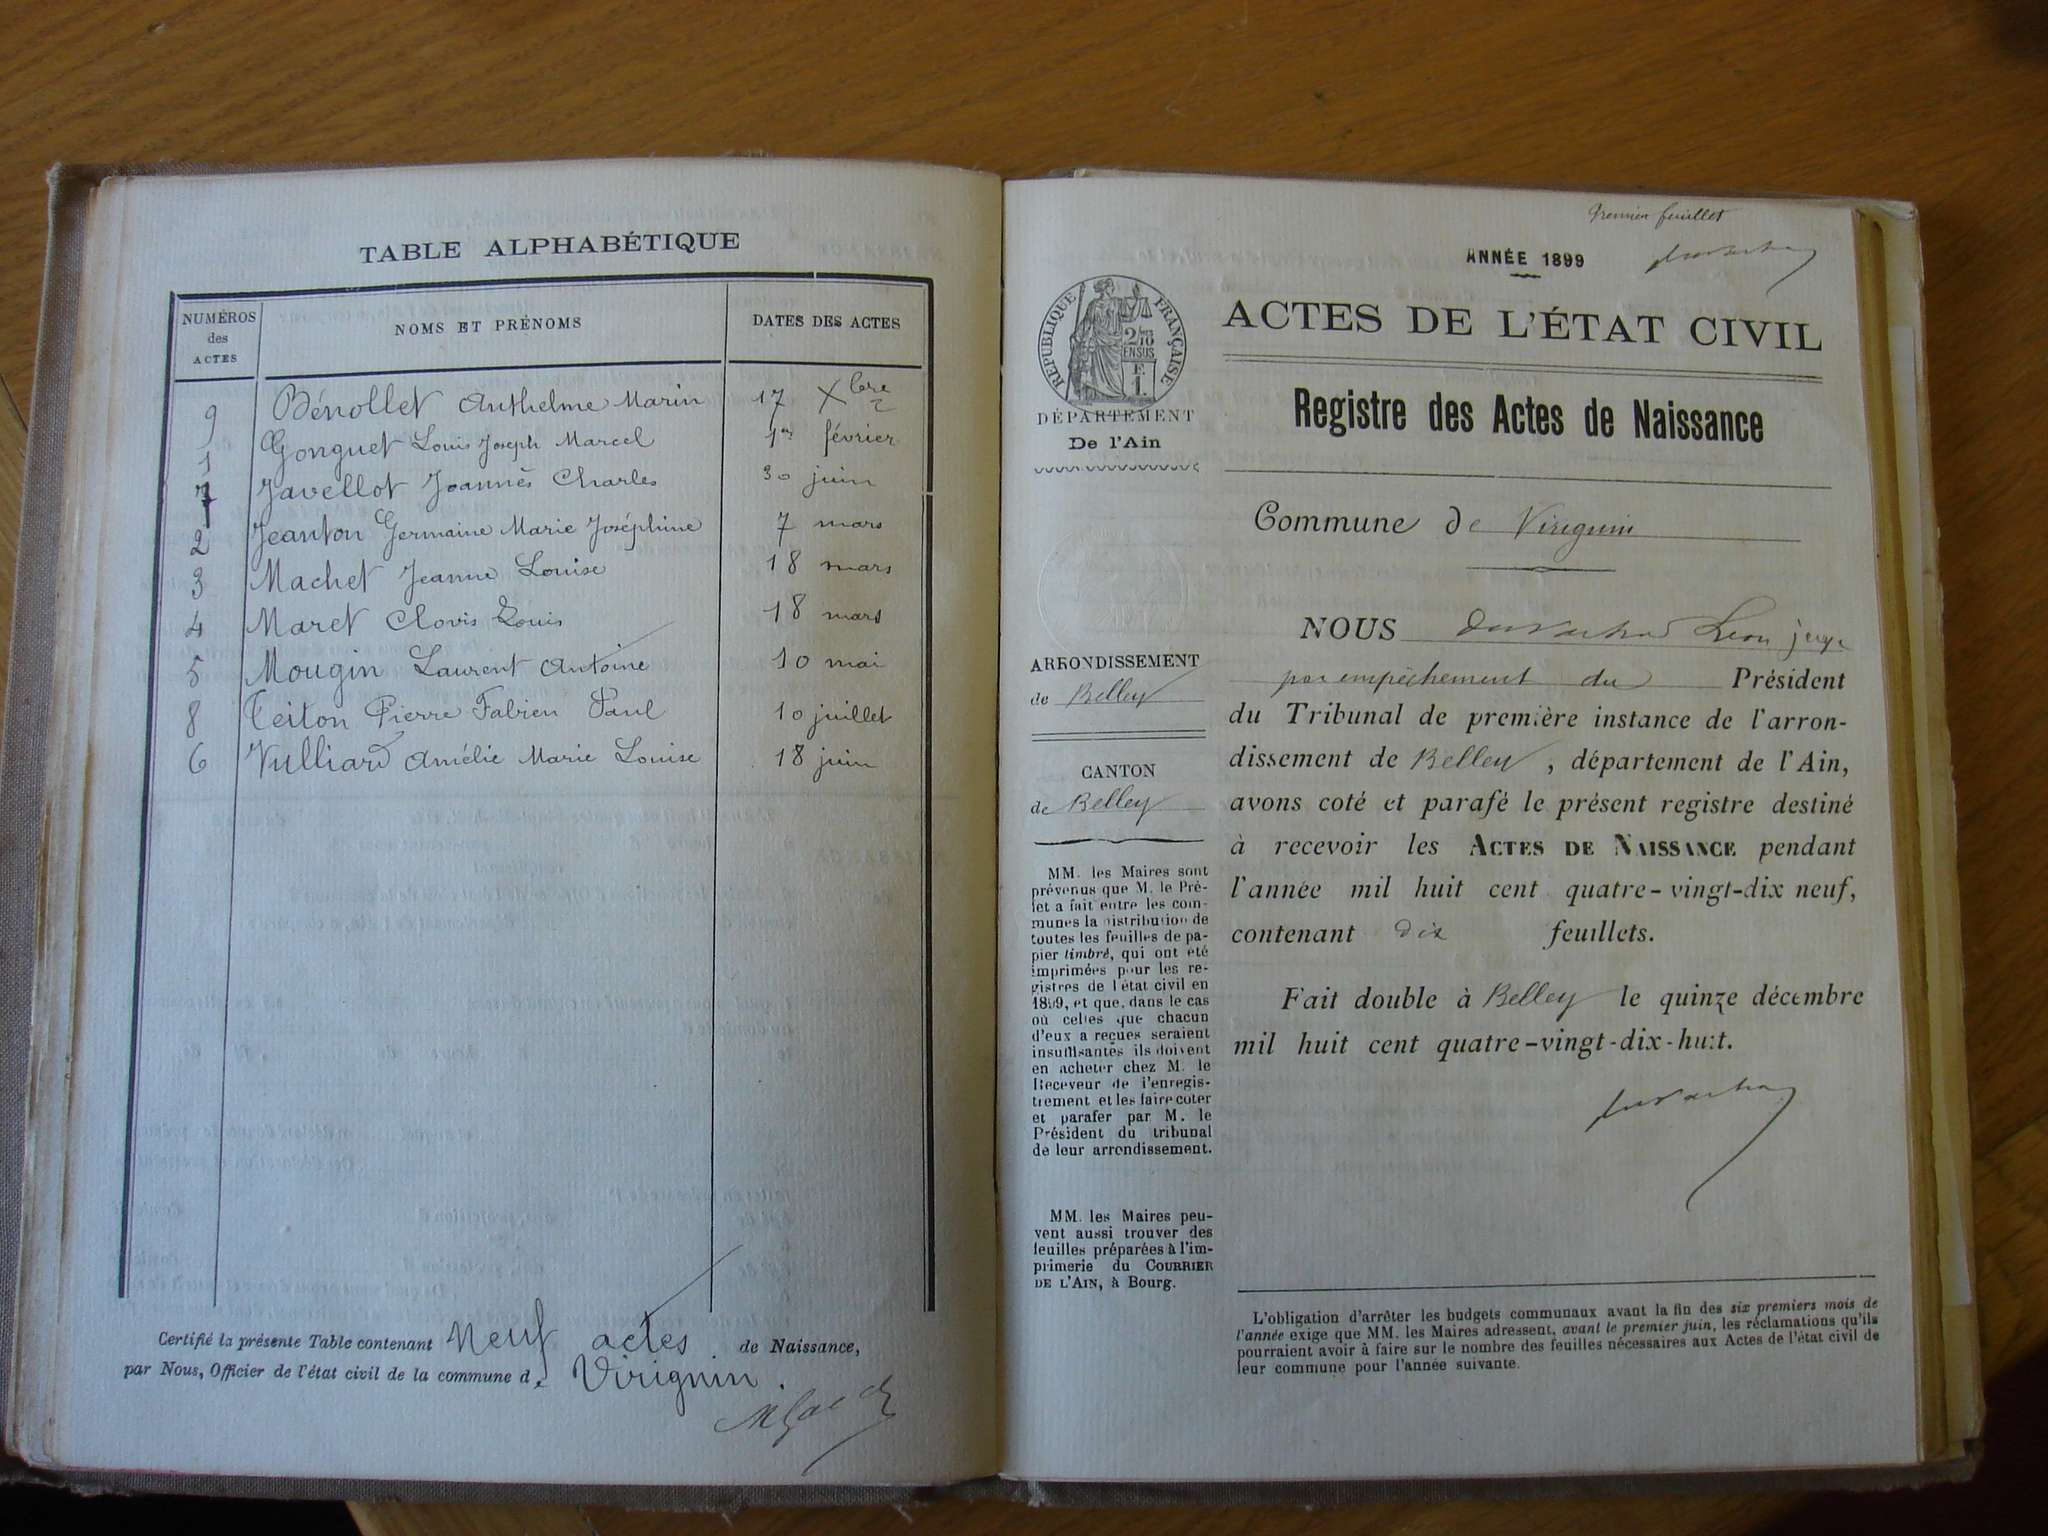 TABLE ALPHABÉTIQUE
NUMÉROS des ACTES NOMS ET PRÉNOMS DATES DES ACTES
9 Bénollet Anthelme Marin 17 Xbre
1 Gonguet Louis Joseph Marcel 1er février
7 Javellot Joannès Charles 30 juin
2 Jeanton Germaine Marie Joséphine 7 mars
3 Machet Jeanne Louise 18 mars
4 Maret Clovis Louis 18 mars
5 Mougin Laurent Antoine 10 mai
8 Teiton Pierre Fabien Paul 10 juillet
6 Vulliard Amélie Marie Louise 18 juin
Certifié la présente Table contenant Neuf actes de Naissance,
par Nous, Officier de l'état civil de la commune de Virignin
Premier feuillet
ANNÉE 1899
RÉPUBLIQUE FRANÇAISE
2/10 EN SUS
F. 1.
DÉPARTEMENT
De l'Ain
ACTES DE L'ÉTAT CIVIL
Registre des Actes de Naissance
Commune de Virignin
ARRONDISSEMENT
de Belley
CANTON
de Belley
MM. les Maires sont
prévenus que M. le Pré-
fet a fait entre les com-
munes la distribution de
toutes les feuilles de pa-
pier timbré, qui ont été
imprimées pour les re-
gistres de l'état civil en
1899, et que, dans le cas
où celles que chacun
d'eux a reçues seraient
insuffisantes ils doivent
en acheter chez M. le
Receveur de l'enregis-
trement et les faire coter
et parafer par M. le
Président du tribunal
de leur arrondissement.
MM. les Maires peu-
vent aussi trouver des
feuilles préparées à l'im-
primerie du COURRIER
DE L'AIN, à Bourg.
NOUS Léon juge
par empêchement du Président
du Tribunal de première instance de l'arron-
dissement de Belley, département de l'Ain,
avons coté et parafé le présent registre destiné
à recevoir les ACTES DE NAISSANCE pendant
l'année mil huit cent quatre-vingt-dix neuf,
contenant dix feuillets.
Fait double à Belley le quinze décembre
mil huit cent quatre-vingt-dix-huit.
L'obligation d'arrêter les budgets communaux avant la fin des six premiers mois de
l'année exige que MM. les Maires adressent, avant le premier juin, les réclamations qu'ils
pourraient avoir à faire sur le nombre des feuilles nécessaires aux Actes de l'état civil de
leur commune pour l'année suivante.